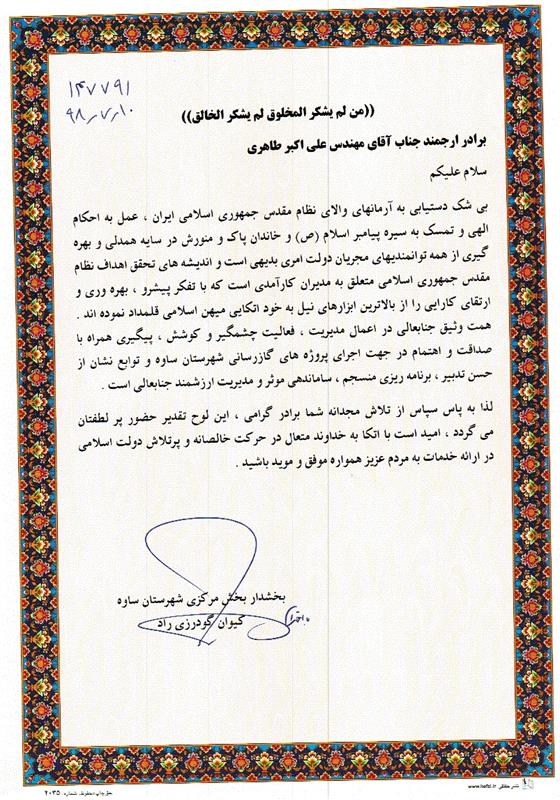 ۱۴۷۷۹۱
۹۸،۷،۱۰
((من لم یشکر المخلوق لم یشکر الخالق))
برادر ارجمند جناب آقای مهندس علی اکبر طاهری
سلام علیکم
بی شک دستیابی به آرمانهای والای نظام مقدس جمهوری اسلامی ایران ، عمل به احکام
الهی و تمسک به سیره پیامبر اسلام (ص) و خاندان پاک و منورش در سایه همدلی و بهره
گیری از همه توانمندیهای مجریان دولت امری بدیهی است و اندیشه های تحقق اهداف نظام
مقدس جمهوری اسلامی متعلق به مدیران کارآمدی است که با تفکر پیشرو ، بهره وری و
ارتقای کارایی را از بالاترین ابزارهای نیل به خود اتکایی میهن اسلامی قلمداد نموده اند .
همت وثیق جنابعالی در اعمال مدیریت ، فعالیت چشمگیر و کوشش ، پیگیری همراه با
صداقت و اهتمام در جهت اجرای پروژه های گازرسانی شهرستان ساوه و توابع نشان از
حسن تدبیر ، برنامه ریزی منسجم ، ساماندهی موثر و مدیریت ارزشمند جنابعالی است .
لذا به پاس سپاس از تلاش مجدانه شما برادر گرامی ، این لوح تقدیر حضور پر لطفتان
می گردد ، امید است با اتکا به خداوند متعال در حرکت خالصانه و پرتلاش دولت اسلامی
در ارائه خدمات به مردم عزیز همواره موفق و موید باشید .
بخشدار بخش مرکزی شهرستان ساوه
کیوان گودرزی راد
نشر حفظی www.hefzi.ir
حق چاپ محفوظ. شماره. ۲۰۳۵